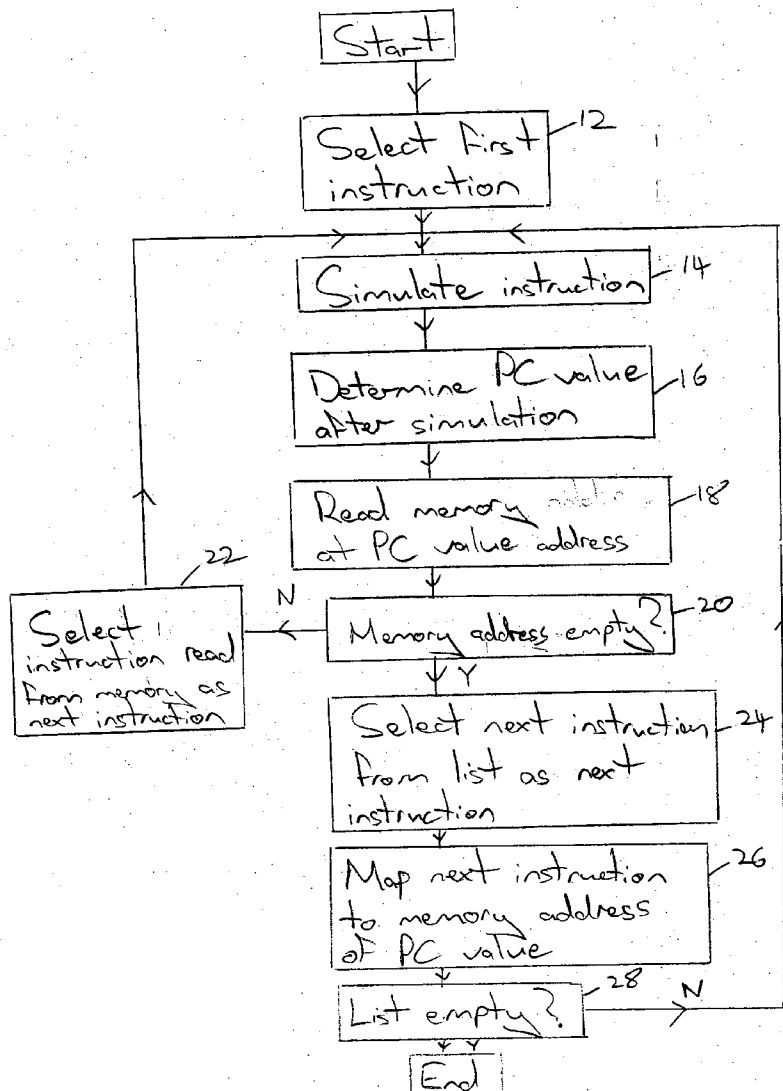 Start
12
Select first
instruction
14
Simulate instruction
16
Determine PC value
after simulation
18
Read memory
at PC value address
20
Memory address empty?
N
Y
22
Select
instruction read
from memory as
next instruction
24
Select next instruction
from list as next
instruction
26
Map next instruction
to memory address
of PC value
28
List empty?
N
Y
End